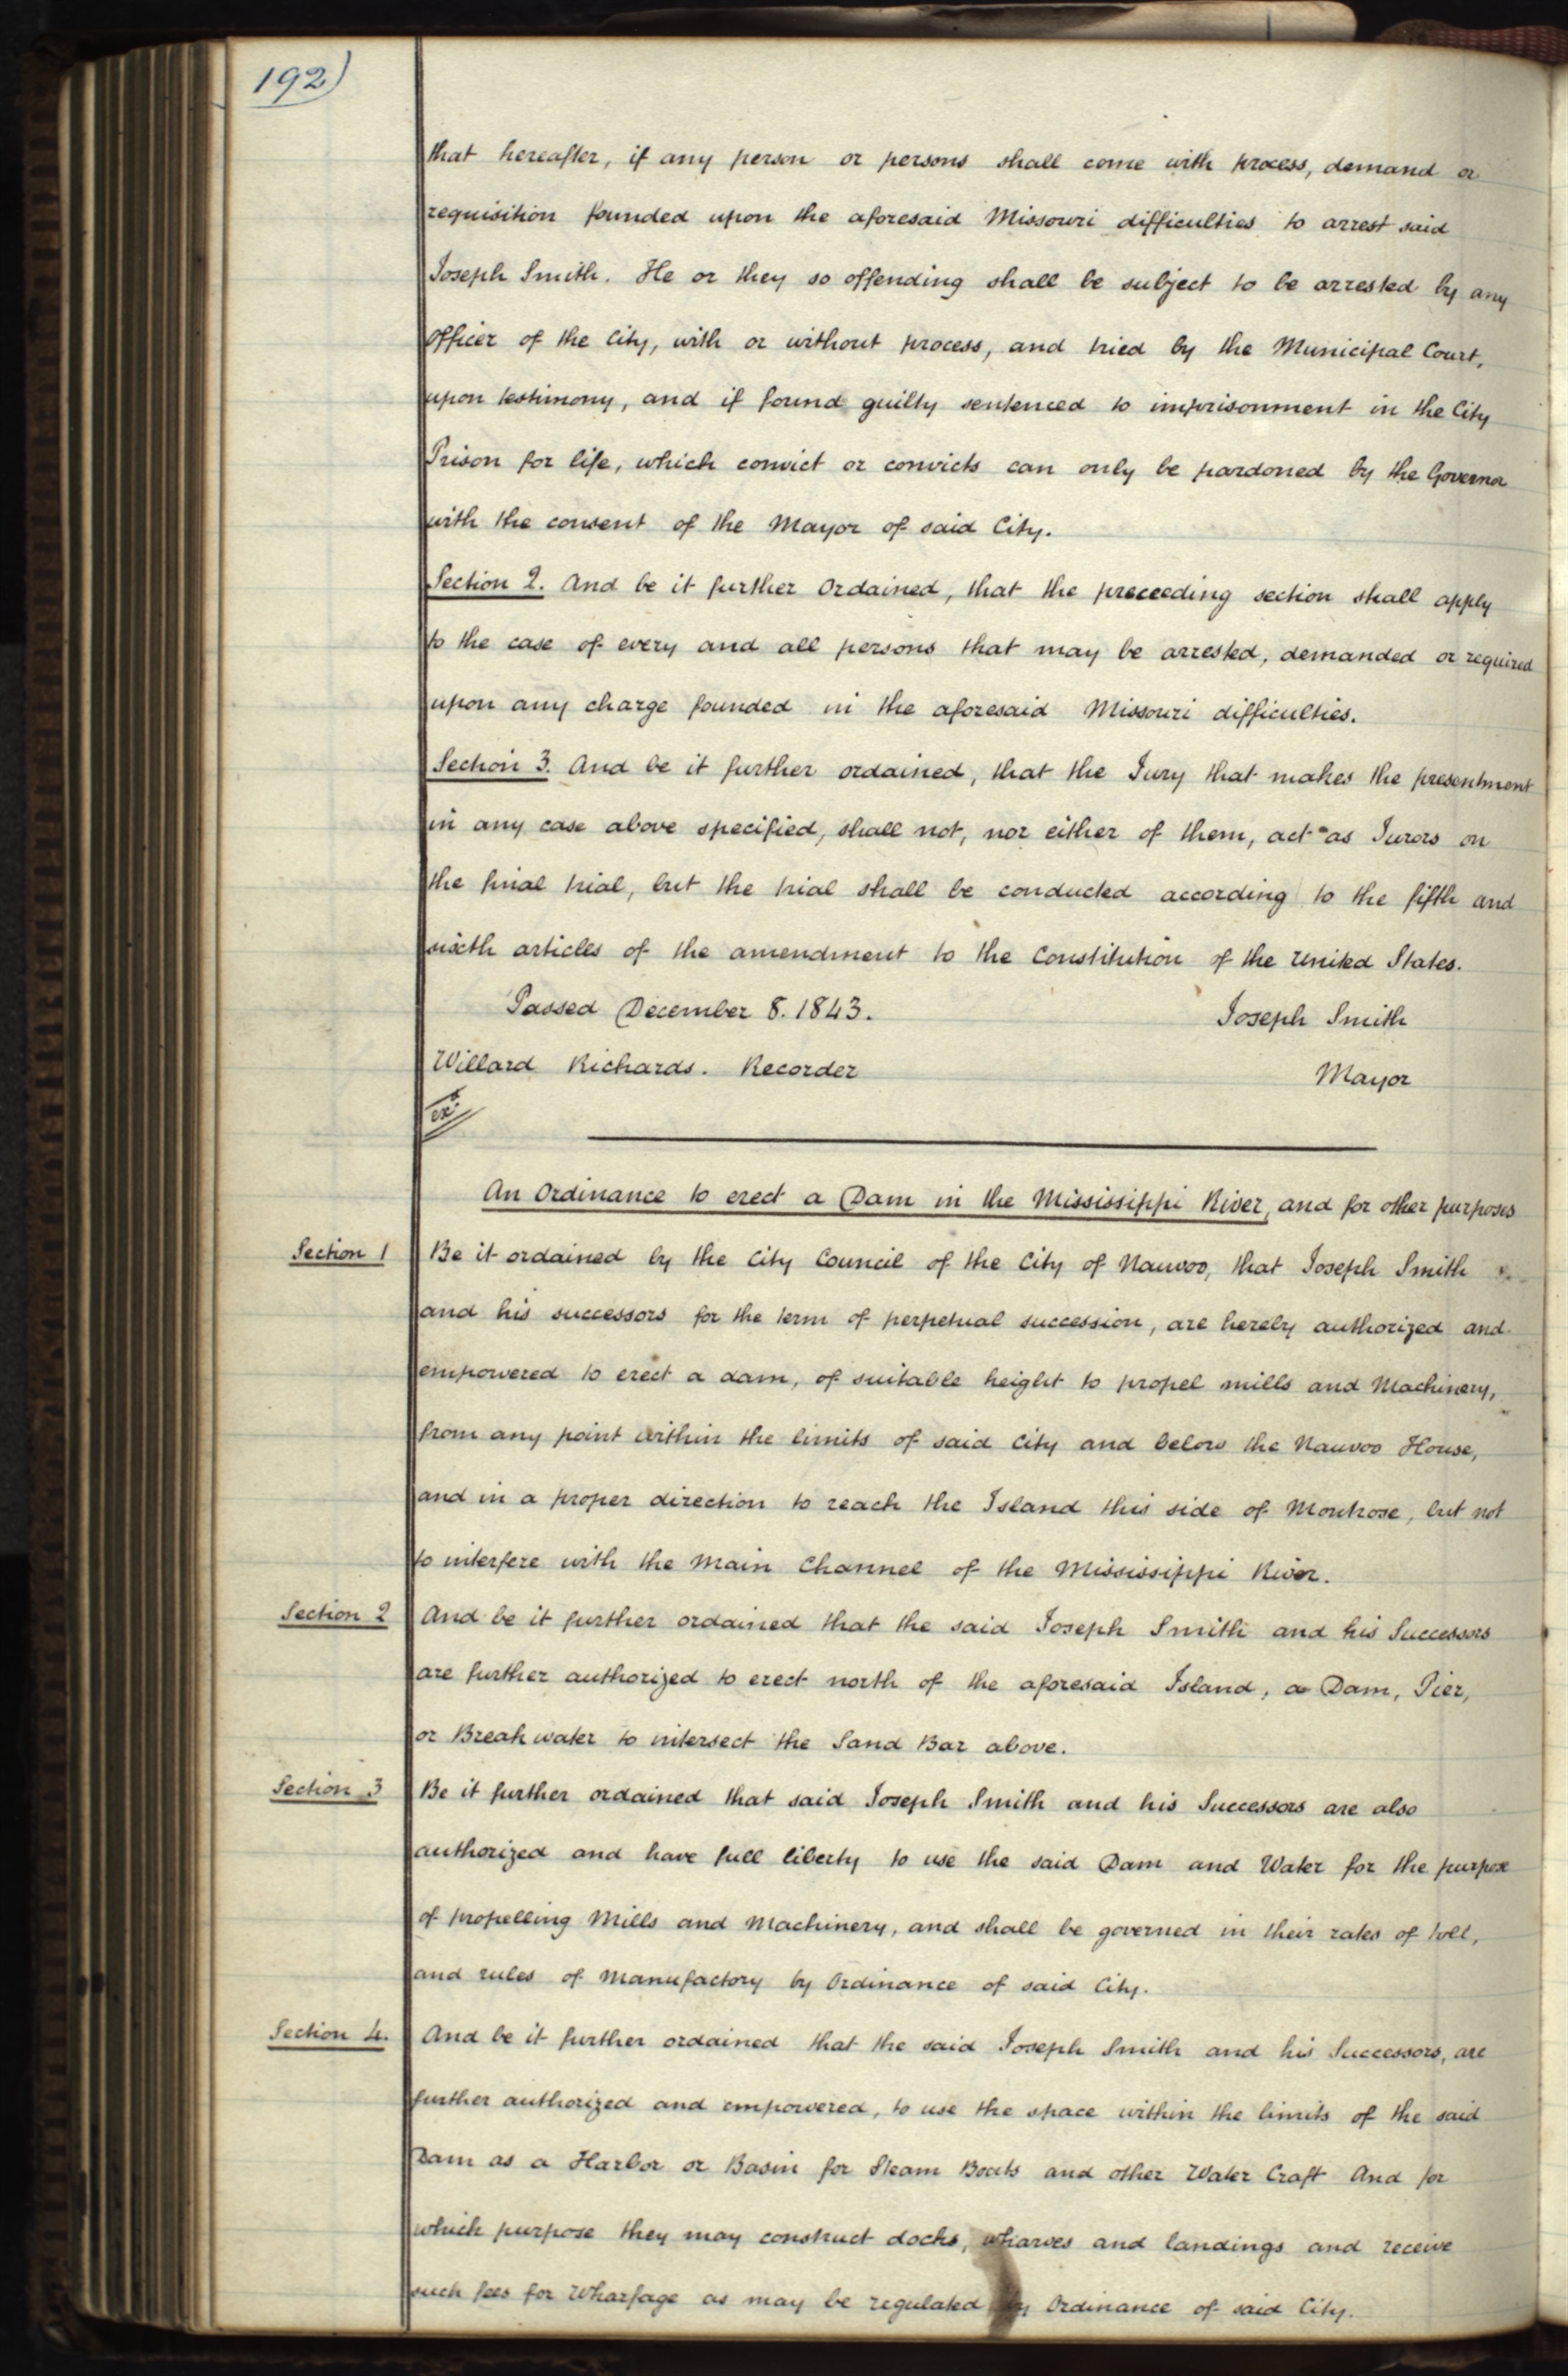 192)
that hereafter, if any person or persons shall come with process, demand or
requisition founded upon the aforesaid Missouri difficulties to arrest said
Joseph Smith. He or they so offending shall be subject to be arrested by any
Officer of the City, with or without process, and tried by the Municipal Court,
upon testimony, and if found guilty sentenced to imprisonment in the City
Prison for life, which convict or convicts can only be pardoned by the Governor
with the consent of the Mayor of said City.
Section 2. And be it further Ordained, that the preceeding section shall apply
to the case of every and all persons that may be arrested, demanded or required
upon any charge founded in the aforesaid Missouri difficulties.
Section 3. And be it further ordained, that the Jury that makes the presentment
in any case above specified, shall not, nor either of them, act as Jurors on
the final trial, but the trial shall be conducted according to the fifth and
sixth articles of the amendment to the Constitution of the United States.
Passed December 8. 1843. Joseph Smith
Willard Richards. Recorder Mayor
An Ordinance to erect a Dam in the Mississippi River, and for other purposes
Section 1 Be it ordained by the City Council of the City of Nauvoo, that Joseph Smith
and his successors for the term of perpetual succession, are hereby authorized and
empowered to erect a dam, of suitable height to propel mills and Machinery,
from any point within the limits of said City and below the Nauvoo House,
and in a proper direction to reach the Island this side of Montrose, but not
to interfere with the Main Channel of the Mississippi River.
Section 2 And be it further ordained that the said Joseph Smith and his Successors
are further authorized to erect north of the aforesaid Island, a Dam, Pier,
or Break water to intersect the Sand Bar above.
Section 3 Be it further ordained that said Joseph Smith and his Successors are also
authorized and have full liberty to use the said Dam and Water for the purpose
of propelling Mills and Machinery, and shall be governed in their rates of toll,
and rules of Manufactory by Ordinance of said City.
Section 4. And be it further ordained that the said Joseph Smith and his Successors, are
further authorized and empowered, to use the space within the limits of the said
Dam as a Harbor or Basin for Steam Boats and other Water Craft And for
which purpose they may construct docks, wharves and landings and receive
such fees for Wharfage as may be regulated by Ordinance of said City.